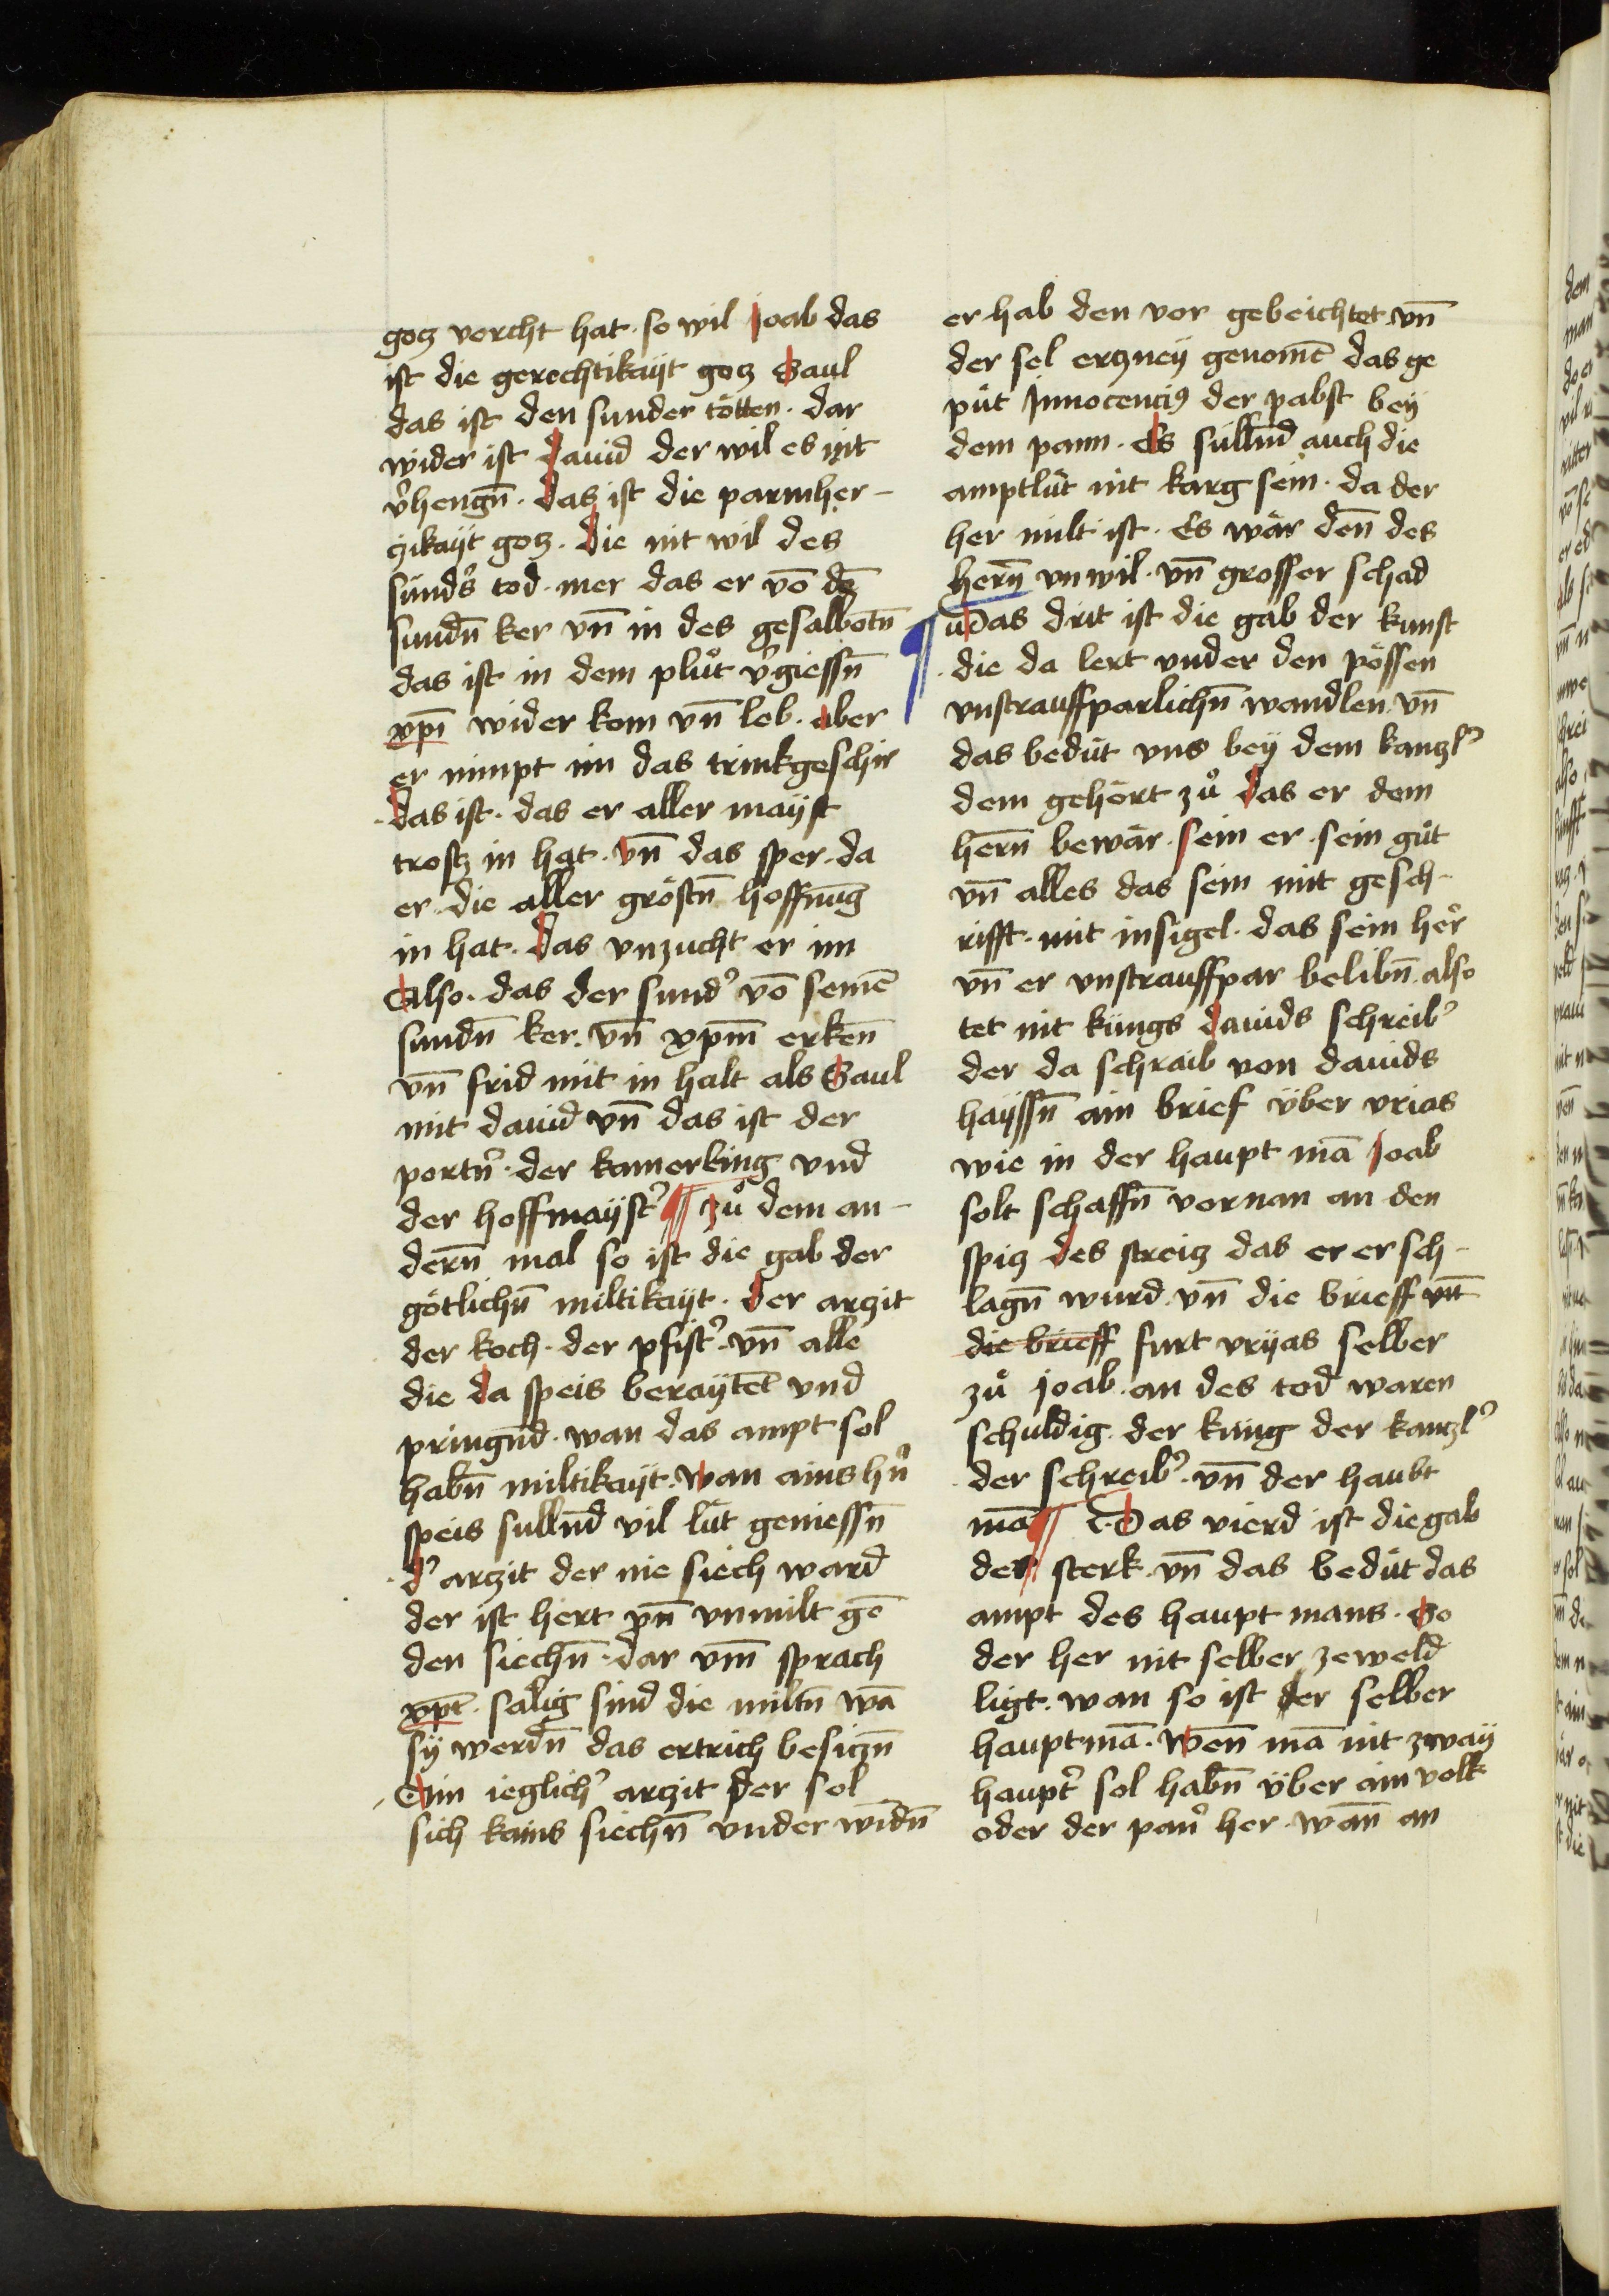 gotz vorcht hat · so wil Joab das
ist die gerechtikayt gotz Saul
das ist den sunder tötten · dar
wider ist dauid der wil es nit
v͛hengn̄ · das ist die parmher-
tzikayt gotz · die nit wil des
sünd͛s tod · mer das er vō dē
sundn̄ ker vn̄ in des gesalbotn̄
das ist in dem plůt v͛giessn̄
xp̄i wider kom vn̄ leb · aber
er nimpt im das trinkgeschir
· das ist · das er aller mayst
trostz in hat · vn̄ das sper · da
er · die aller gröstn̄ hoffnūg
in hat · das vnzucht er im
Also · das der sund͛ vō seinē
sundn̄ ker · vn̄ xp̄m erken̄
vn̄ frid mit in halt als Saul
mit dauid vn̄ das ist der
portn͛ · der kamerking und
der hoffmayst͛ ¶ zů dem an-
dern̄ mal so ist die gab der
götlichn̄ miltikayt · der artzit
der koch · der pfist͛ · vn̄ alle
die da speis beraytēt und
pringn̄d · wan das ampt sol
habn̄ miltikayt · wan ains hn͛
speis sulln̄d vil lüt geniessn̄
· d͛ artzit der nie siech ward
der ist hert vn̄ vnmilt gē
den siechn̄ · dar vm̄ sprach
xp̄t · salig sind die miltn̄ wā
sy werdn̄ das ertrich besitzn̄
Ain ieglich͛ artzit der sol
sich kains siechn̄ under windn̄
er hab den vor gebeichtet · vn̄
der sel ertzney genomē das ge
püt Innocenciꝰ der pabst bey
dem pann · Es sülln̄d auch die
amptlüt nit karg sein · da der
her milt ist · Es wär den̄ des
hern̄ vnwil · vn̄ grosser schad
¶ Das drit ist die gab der kunst
· die da lert under den pössen
vnstrauffparlichn̄ wandlen · vn̄
das bedüt vns bey dem kantzl͛
dem gehört zů das er dem
hern̄ bewär · sein er · sein gůt
vn̄ alles das sein mit gesch-
rifft · mit insigel · das sein her͛
vn̄ er vnstrauffpar belibn̄ · also
tet nit küngs dauids schreib͛
der da schraib von dauids
hayssn̄ ain brief über vrias
wie in der haupt mā Joab
solt schaffn̄ vornan an den
spitz des streitz das er ersch-
lagn̄ wurd · vn̄ die brieff vn̄
die brieff furt vryas selber
zů joab · an des tod waren
schuldig · der küng der kantzl͛
der schreib͛ · vn̄ der haubt
mā ¶ Das vierd ist die gab
der sterk · vn̄ das bedüt das
ampt des haupt mans · So
der her nit selber zeweld
ligt · wan so ist der selber
hauptmā · wen̄ mā nit zway
haupt͛ sol habn̄ über ain volk
oder der pan͛ her · wan̄ an